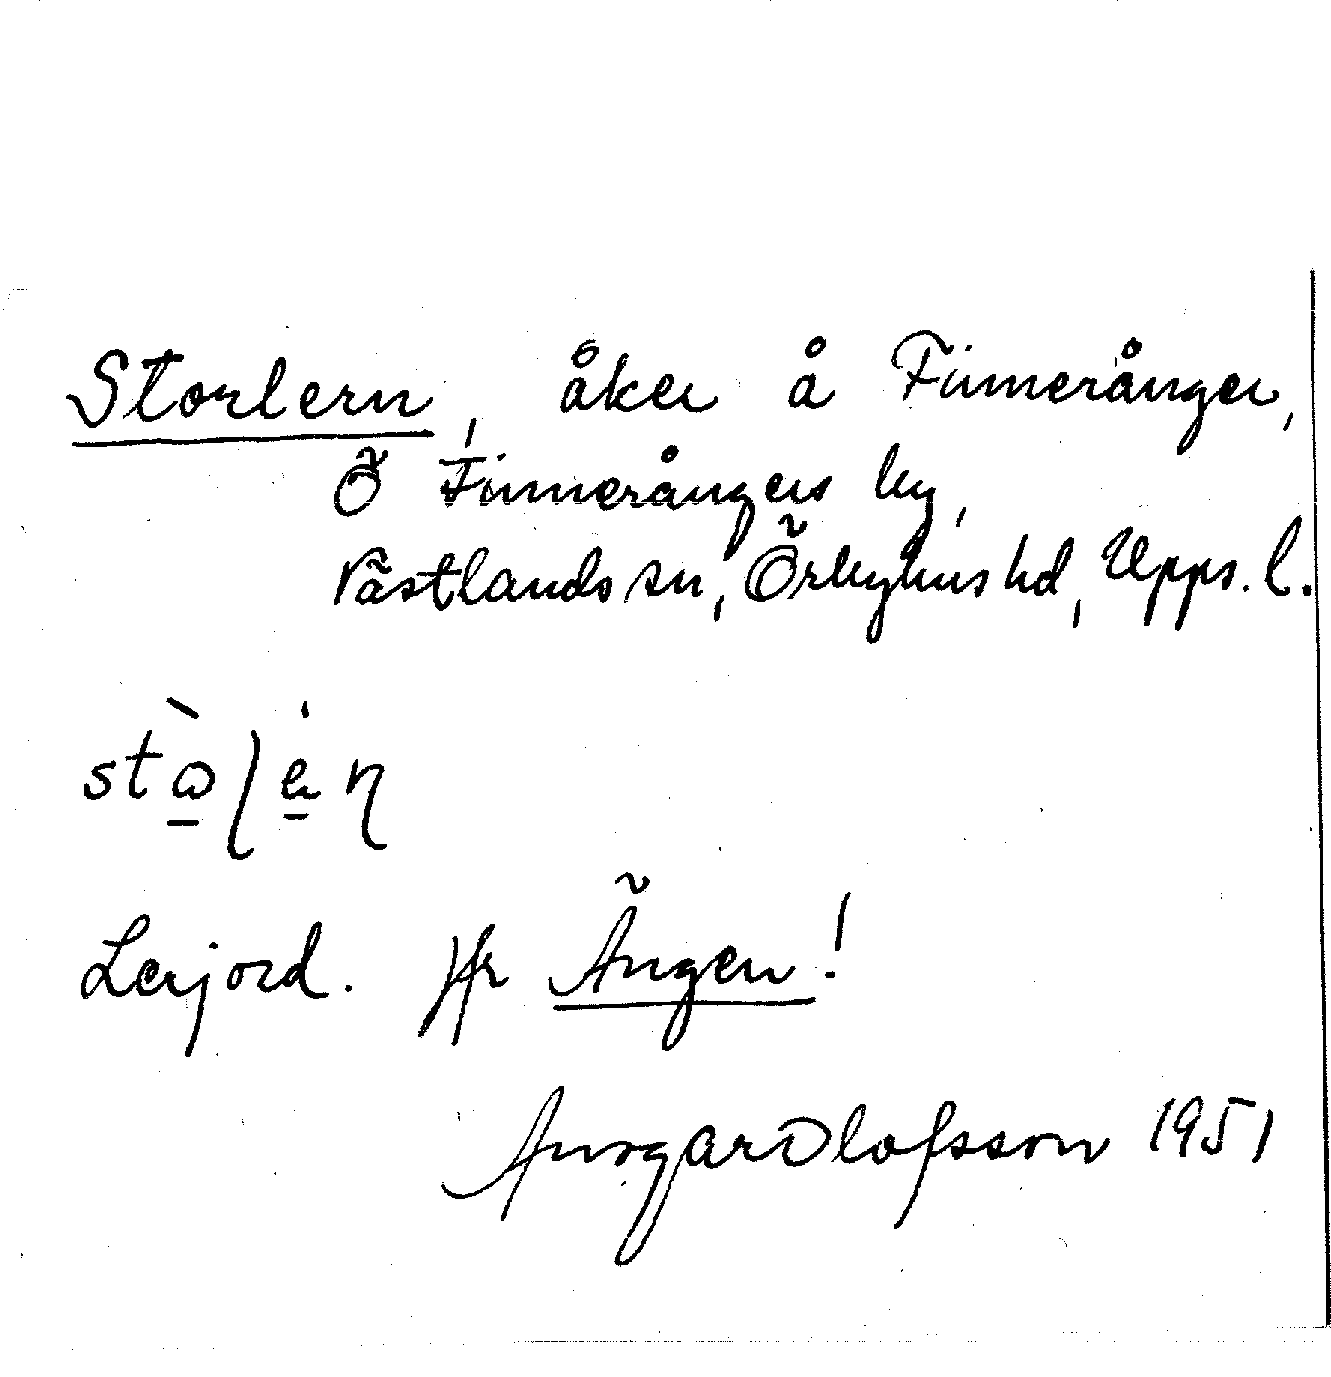 Storlern, åker å Finnerånger,
Ö Finnerångers by,
Västlands sn, Örbyhus hd, Upps. l.
Lerjord. Jfr Ängen!
Ansgar Olofsson 1951